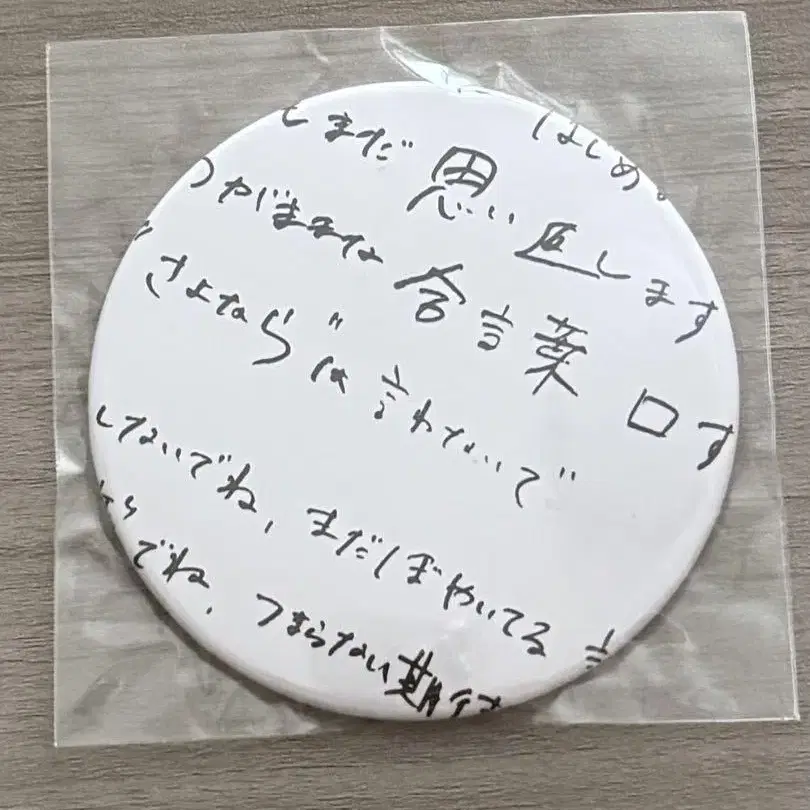 しまだ 思い返します はじめ
わがままな 合言葉 口す
さよなら"は 言わないで
しないでね、まだぼやいてる
でね、つまらない期待